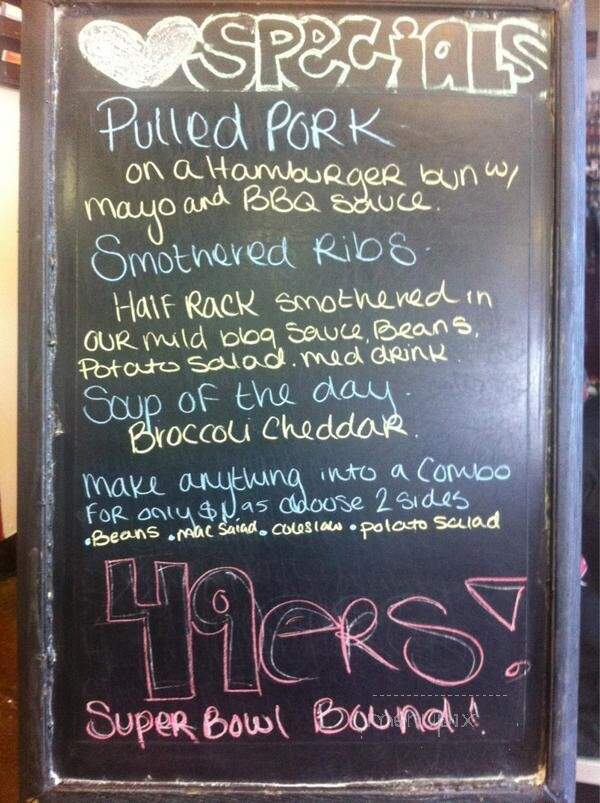 SPECiaLS
Pulled PORK
on a HambuRgeR bun w/
mayo and BBQ Sauce.
Smothered Ribs.
Half Rack smothered in
OUR mild bbq Sauce, Beans,
Potato Salad. med drink.
Soup of the day.
Broccoli Cheddar.
make anything into a Combo
FOR only choose 2 Sides
•Beans •mac Salad • coleslaw • potato salad
49ers!
Super Bowl Bound!